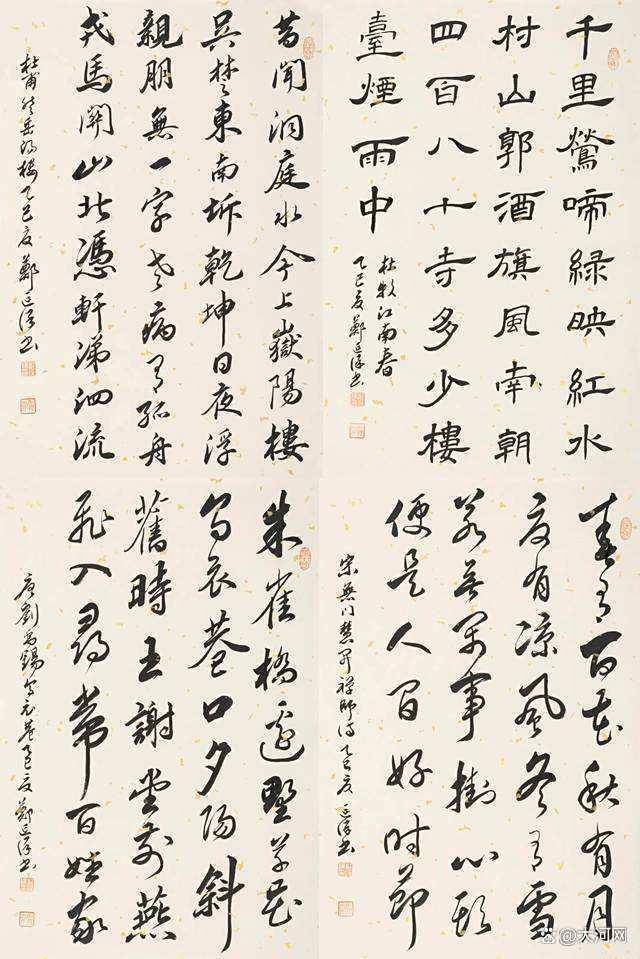 千里鶯啼緑映紅水
村山郭酒旗風南朝
四百八十寺多少樓
臺煙雨中
杜牧江南春
乙巳夏鄭延书
昔聞洞庭水今上嶽陽樓
吳楚東南坼乾坤日夜浮
親朋無一字老病有孤舟
戎馬關山北憑軒涕泗流
杜甫登岳陽樓乙巳夏鄭延书
春有百花秋有月
夏有凉風冬有雪
若無闲事掛心頭
便是人間好时節
宋無門慧開禪師詩乙巳夏延书
朱雀橋邊野草花
烏衣巷口夕陽斜
舊時王謝堂前燕
飛入尋常百姓家
唐劉禹錫烏衣巷乙巳夏鄭延书
大河网